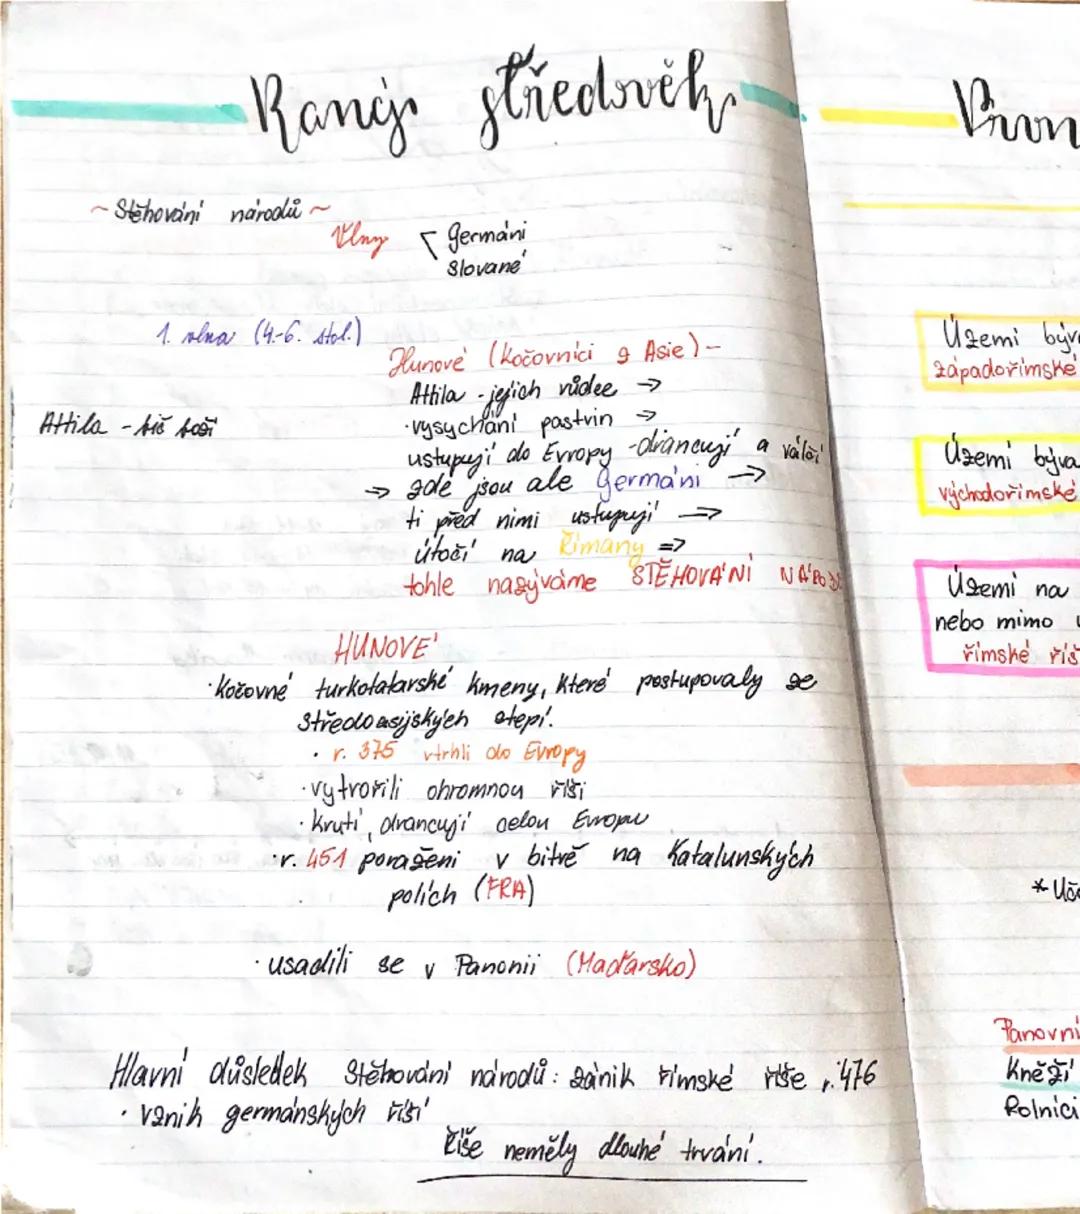 Raný středověk
~ Stěhování národů ~
Vlny
Germáni
Slované
1. vlna (4.-6. stol.)
Hunové (kočovníci z Asie) -
Attila - jejich vůdce →
Attila - bič boží
· vysychání pastvin →
ustupují do Evropy - drancují a válčí
⇒ zde jsou ale Germáni →
ti před nimi ustupují →
útočí na Římany ⇒
tohle nazýváme STĚHOVÁNÍ
HUNOVÉ
· kočovné turkotatarské kmeny, které postupovaly ze
středoasijských stepí.
· r. 375 vtrhli do Evropy
· vytvořili ohromnou říši
· krutí, drancují celou Evropu
· r. 451 poraženi v bitvě na Katalunských
polích (FRA)
· usadili se v Panonii (Maďarsko)
Hlavní důsledek Stěhování národů: zánik římské říše r. 476
· vznik germánských říší
Říše neměly dlouhé trvání.
Území
západořímské
Území
východořímské
Území na
nebo mimo
římské
Kněží
Rolníci